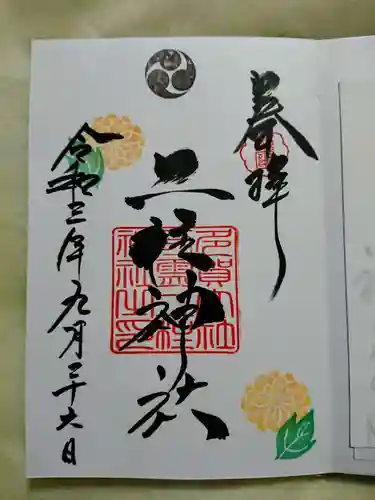 奉拝
二柱神社
令和三年九月二十六日